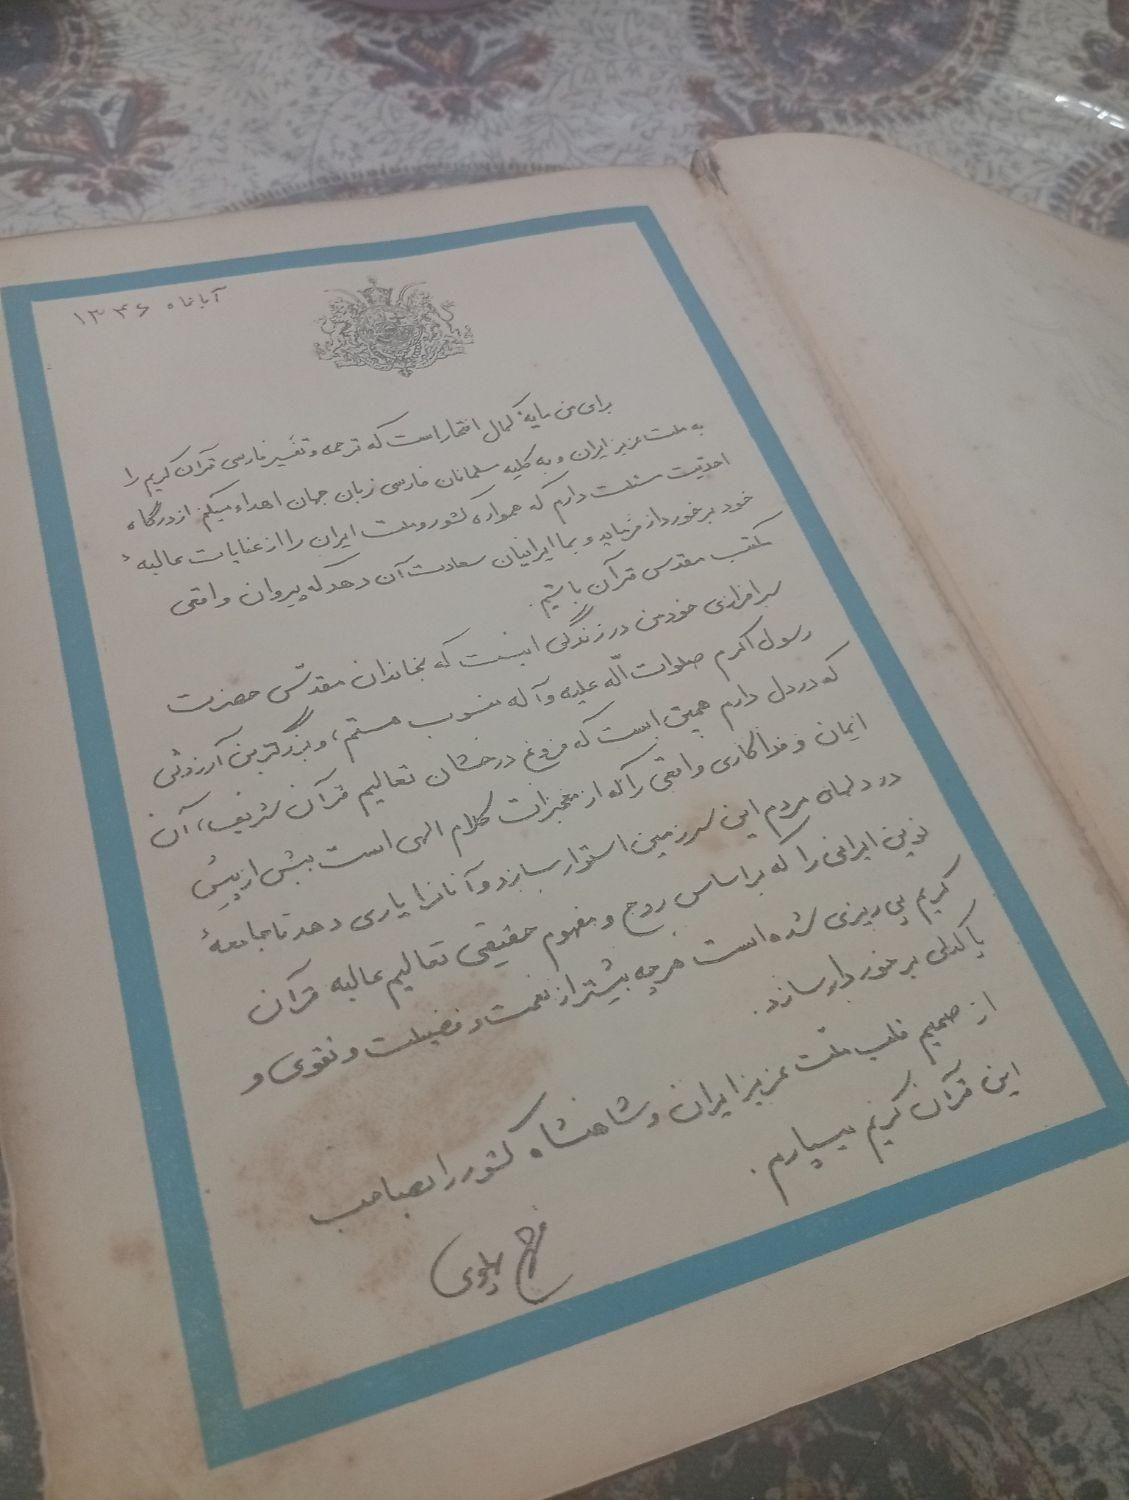 آبانماه ۱۳۴۶
برای من مایهٔ کمال افتخار است که ترجمه و تفسیر فارسی قرآن کریم را
به ملت عزیز ایران و به کلیه مسلمانان فارسی زبان جهان اهداء میکنم از درگاه
احدیت مسئلت دارم که همواره کشور و ملت ایران را از عنایات عالیهٔ
خود برخوردار فرماید و بما ایرانیان سعادت آن دهد که پیروان واقعی
مکتب مقدس قرآن باشیم.
سرافرازی خود من در زندگی اینست که بخاندان مقدس حضرت
رسول اکرم صلوات الله علیه و آله منسوب هستم، و بزرگترین آرزوئی
که در دل دارم همین است که فروغ درخشان تعالیم قرآن شریف، آن
ایمان و فداکاری واقعی را که از معجزات کلام الهی است بیش از پیش
در دلهای مردم این سرزمین استوار سازد و آنانرا یاری دهد تا جامعهٔ
نوین ایرانی را که بر اساس روح و مفهوم حقیقی تعالیم عالیه قرآن
کریم پی ریزی شده است هر چه بیشتر از نعمت و فضیلت و تقوی و
پاکدلی برخوردار سازد.
از صمیم قلب ملت عزیز ایران و شاهنشاه کشور را بصاحب
این قرآن کریم میسپارم.
فرح پهلوی